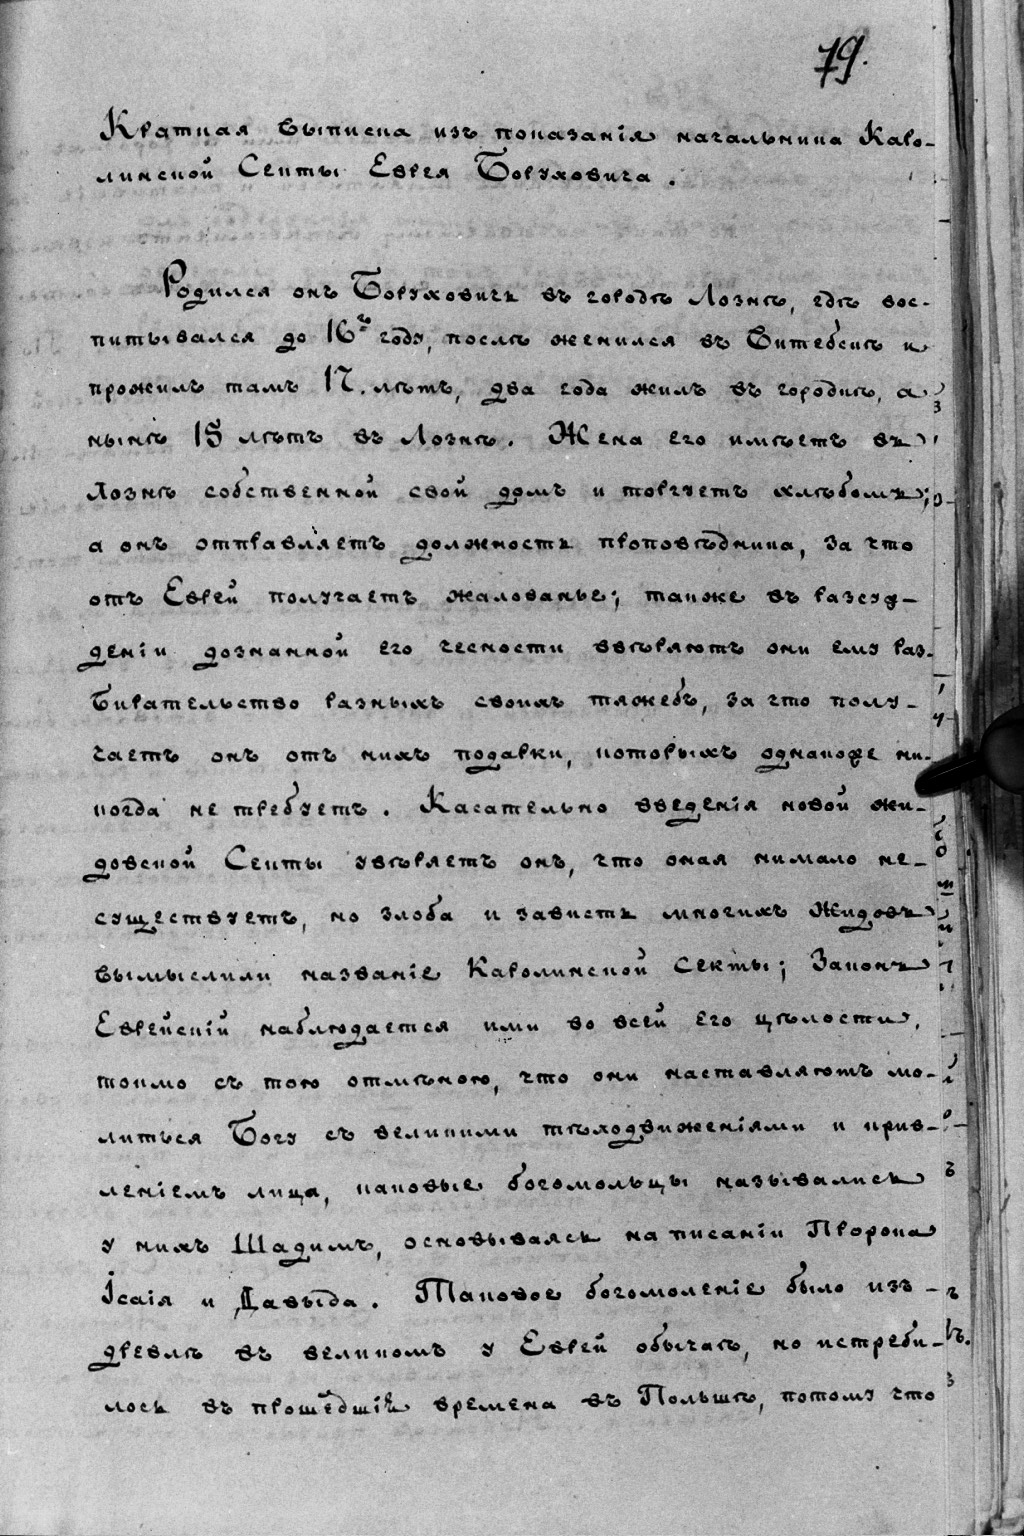 79.
Краткая выписка изъ показанія начальника Каро-
линской Секты Еврея Боруховича.
Родился онъ Боруховичь въ городѣ Лознѣ, гдѣ вос-
питывался до 16ъ году, послѣ женился въ Витебскѣ и
прожилъ тамъ 17. лѣтъ, два года жилъ въ городкѣ, а
нынѣ 15 лѣтъ въ Лознѣ. Жена его имѣетъ въ
Лознѣ собственной свой домъ и торгуетъ хлѣбомъ;
а онъ отправляетъ должность проповѣдника, за что
отъ Еврей получаетъ жалованье; также въ разсуж-
деніи дознанной его чесности ввѣряютъ они ему раз-
бирательство разныхъ своихъ тяжебъ, за что полу-
чаетъ онъ отъ нихъ подарки, которыхъ однакоже ни-
когда не требуетъ. Касательно введенія новой жи-
довской Секты увѣряетъ онъ, что оная нимало не-
существуетъ, но злоба и зависть многихъ Жидовъ
вымыслили названіе Каролинской секты; Законъ
Еврейскій наблюдается ими во всей его цѣлости,
токмо съ тою отмѣною, что они наставляютъ мо-
литься Богу съ великими тѣлодвиженіями и крив-
леніемъ лица, каковые богомольцы назывались
у нихъ Шадимъ, основываясь на писаніи Пророка
Ісаія и Давыда. Таковое богомоленіе было изъ-
древлѣ въ великомъ у Еврей обычаѣ, но истреби-
лось въ прошедшіѣ времена въ Польшѣ, потому что